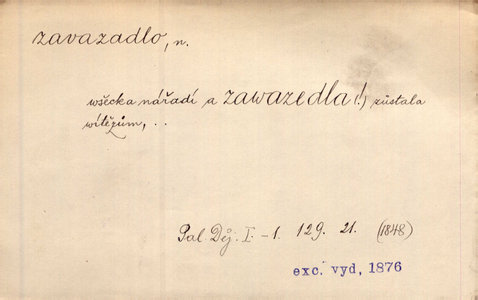 zavazadlo, n.
wšecka nářadí a zawazedla (!) zůstala
wítězům, ..
Pal. Děj. I.-1. 129. 21. (1848)
exc. vyd, 1876